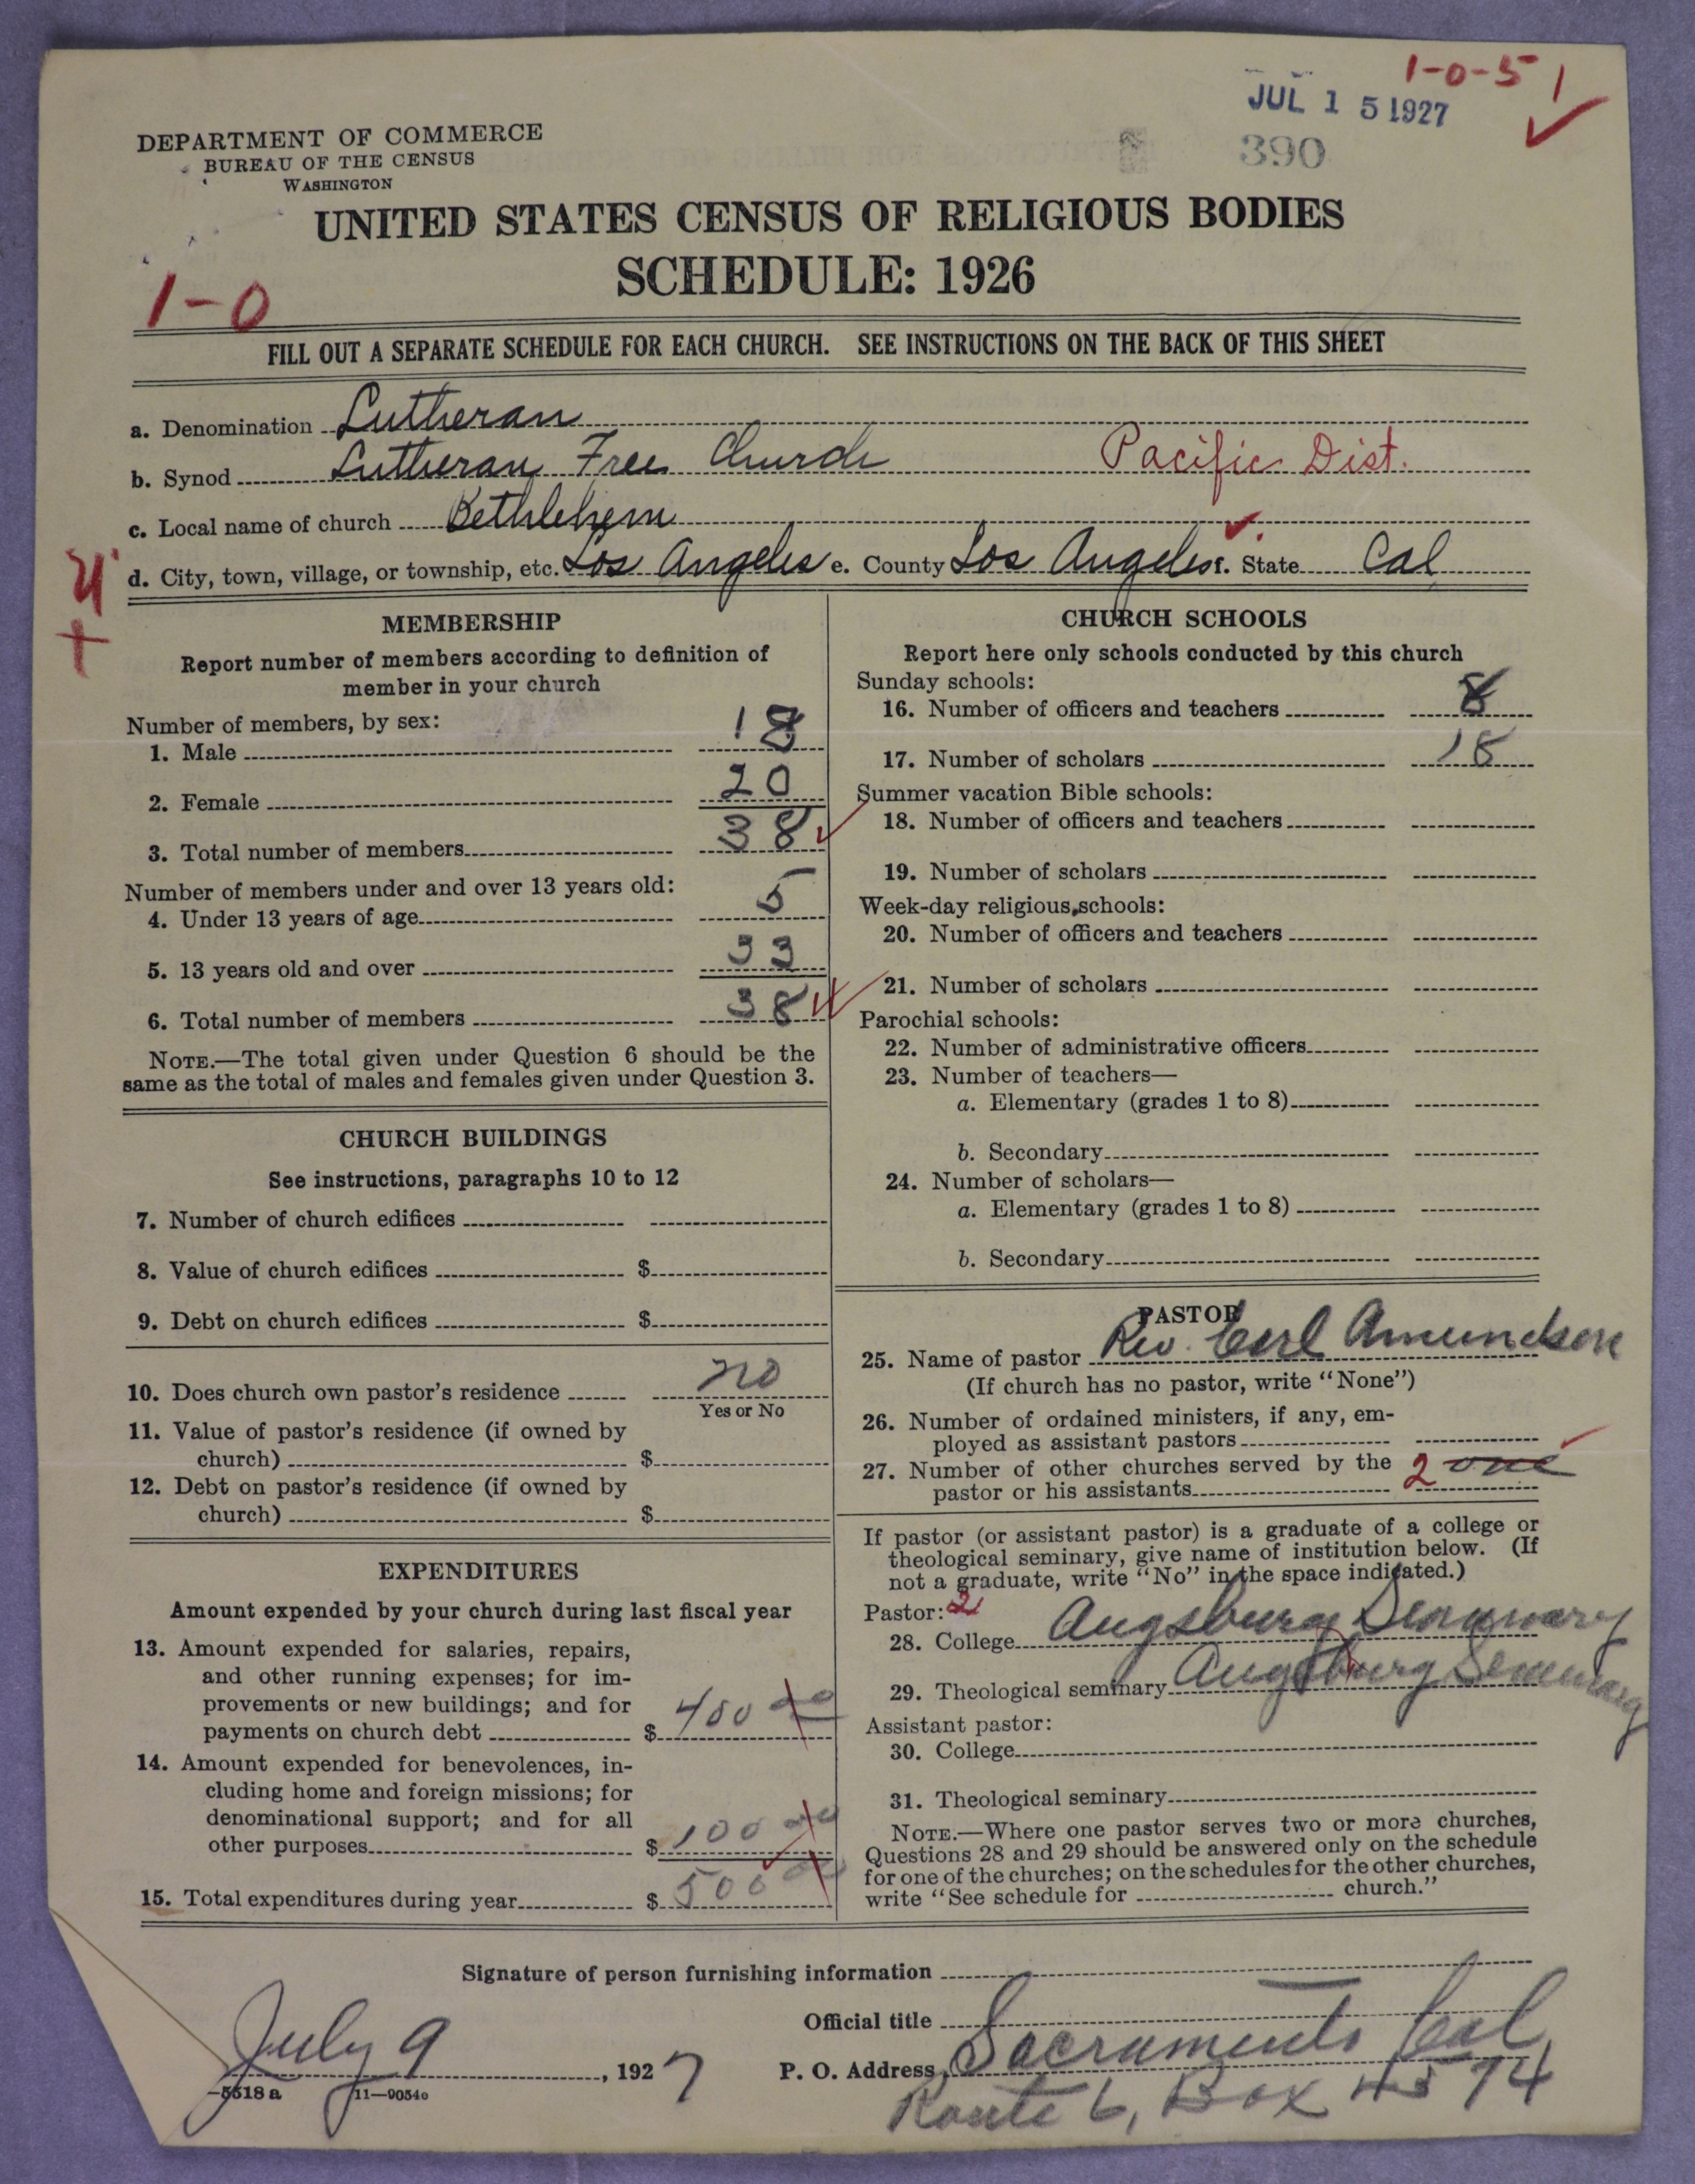 1-0-5 1
JUL 15 1927
390
DEPARTMENT OF COMMERCE
BUREAU OF THE CENSUS
WASHINGTON
UNITED STATES CENSUS OF RELIGIOUS BODIES
SCHEDULE: 1926
1-0
FILL OUT A SEPARATE SCHEDULE FOR EACH CHURCH. SEE INSTRUCTIONS ON THE BACK OF THIS SHEET
a. Denomination Lutheran
b. Synod Lutheran Free Church Pacific Dist.
c. Local name of church Bethlehem
d. City, town, village, or township, etc. Los Angeles e. County Los Angeles f. State Cal
MEMBERSHIP
Report number of members according to definition of
member in your church
Number of members, by sex:
1. Male 18
2. Female 20
3. Total number of members 38
Number of members under and over 13 years old:
4. Under 13 years of age 5
5. 13 years old and over 33
6. Total number of members 38
NOTE.—The total given under Question 6 should be the
same as the total of males and females given under Question 3.
CHURCH BUILDINGS
See instructions, paragraphs 10 to 12
7. Number of church edifices
8. Value of church edifices $
9. Debt on church edifices $
10. Does church own pastor's residence no
Yes or No
11. Value of pastor's residence (if owned by
church) $
12. Debt on pastor's residence (if owned by
church) $
EXPENDITURES
Amount expended by your church during last fiscal year
13. Amount expended for salaries, repairs,
and other running expenses; for im-
provements or new buildings; and for
payments on church debt $ 400 00
14. Amount expended for benevolences, in-
cluding home and foreign missions; for
denominational support; and for all
other purposes $ 100 00
15. Total expenditures during year $ 500 00
CHURCH SCHOOLS
Report here only schools conducted by this church
Sunday schools:
16. Number of officers and teachers 8
17. Number of scholars 18
Summer vacation Bible schools:
18. Number of officers and teachers
19. Number of scholars
Week-day religious schools:
20. Number of officers and teachers
21. Number of scholars
Parochial schools:
22. Number of administrative officers
23. Number of teachers—
a. Elementary (grades 1 to 8)
b. Secondary
24. Number of scholars—
a. Elementary (grades 1 to 8)
b. Secondary
PASTOR
25. Name of pastor Rev. Carl Amundson
(If church has no pastor, write "None")
26. Number of ordained ministers, if any, em-
ployed as assistant pastors
27. Number of other churches served by the 2 one
pastor or his assistants
If pastor (or assistant pastor) is a graduate of a college or
theological seminary, give name of institution below. (If
not a graduate, write "No" in the space indicated.)
Pastor: 2
28. College Augsburg Seminary
29. Theological seminary Augsburg Seminary
Assistant pastor:
30. College
31. Theological seminary
NOTE.—Where one pastor serves two or more churches,
Questions 28 and 29 should be answered only on the schedule
for one of the churches; on the schedules for the other churches,
write "See schedule for church."
Signature of person furnishing information
Official title
July 9, 1927 P. O. Address Sacramento Cal
Route 6, Box 4574
—5518 a 11—9054o